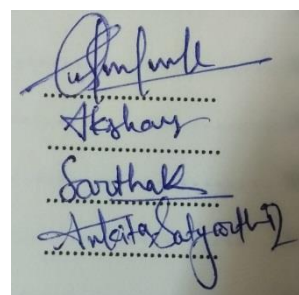 Akshay
Sarthak
Ankita Satyarthi